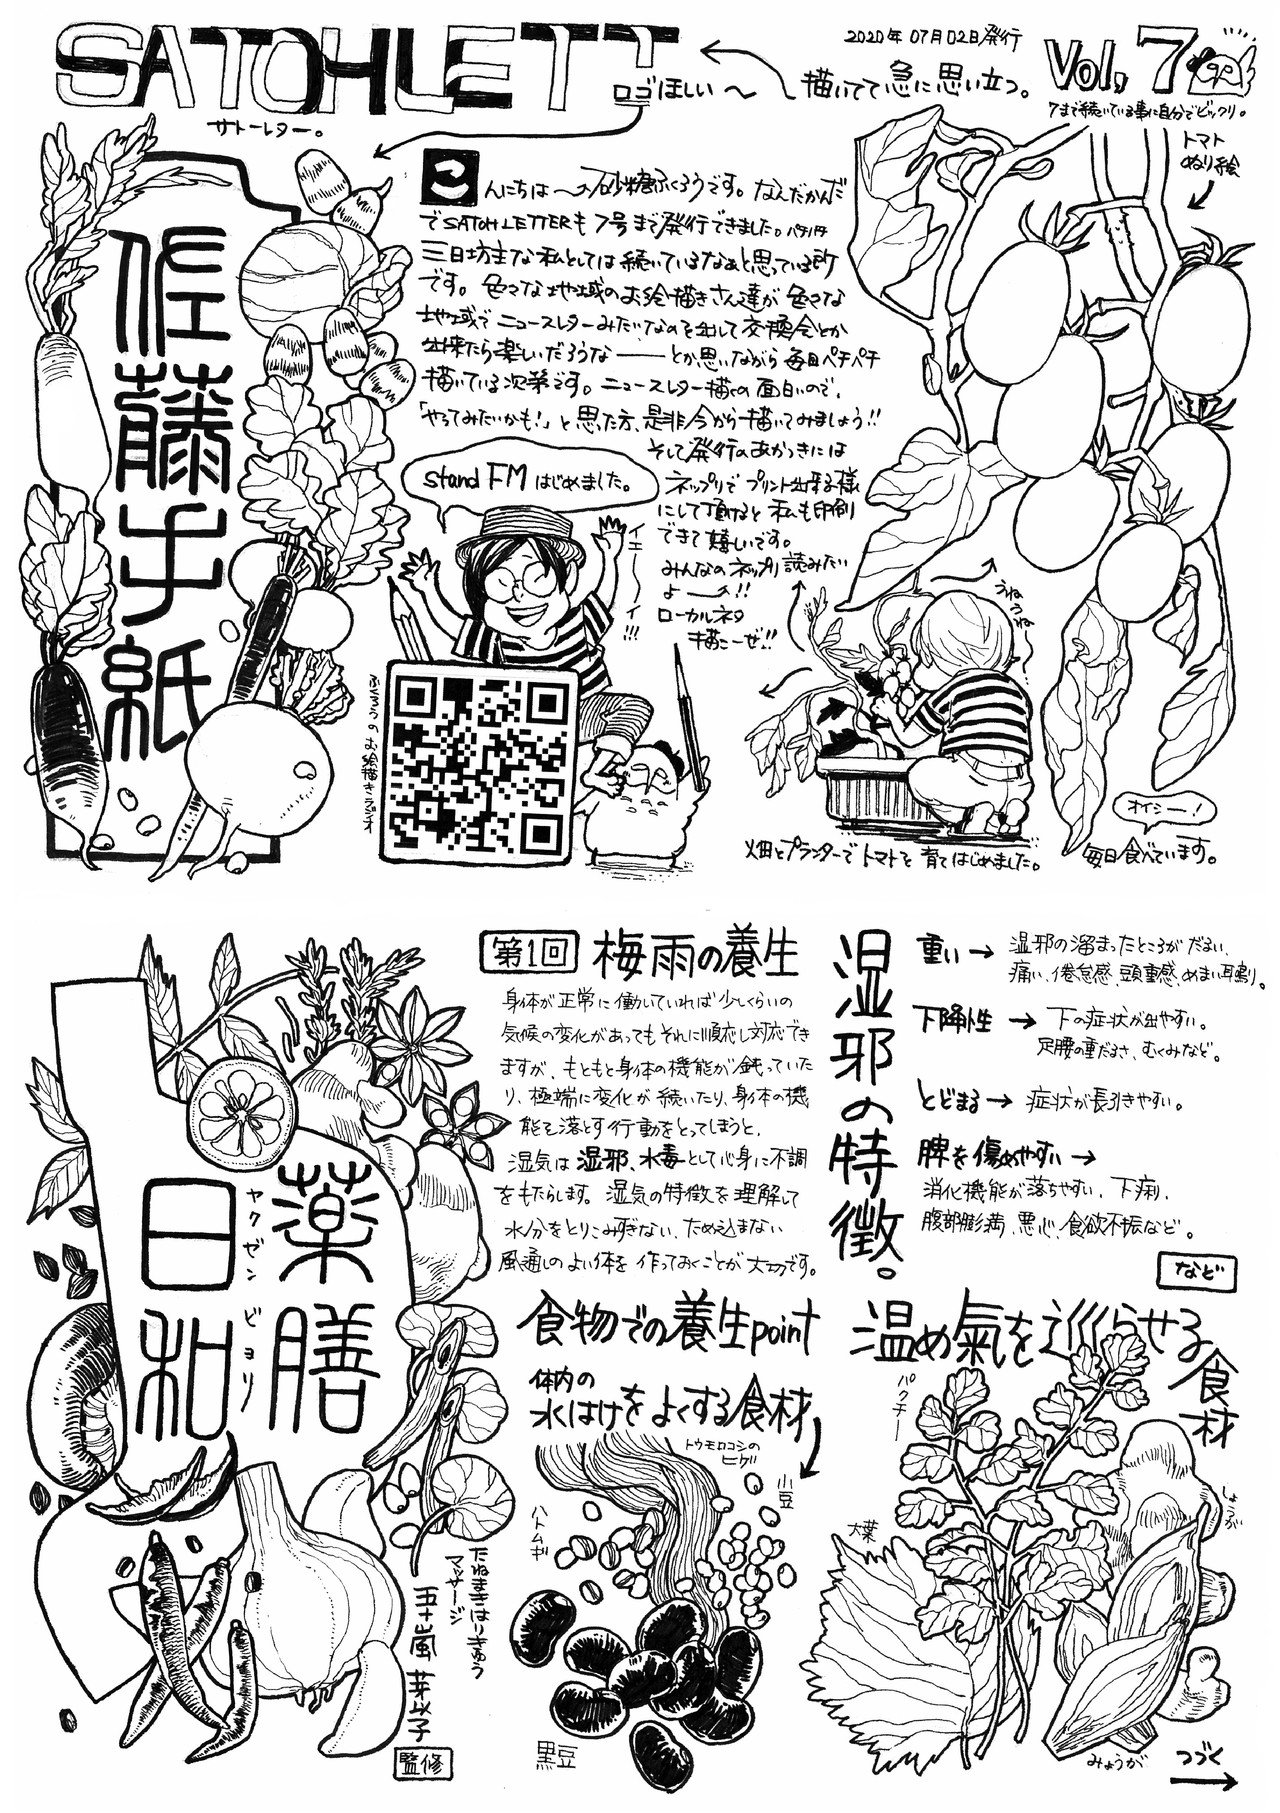 SATOHLETT
サトーレター。
ロゴほしい〜
描いてて急に思い立つ。
2020年07月02日発行
Vol, 7
7まで続いている事に自分でビックリ。
トマト
ぬり絵
佐藤手紙
こんにちは〜の砂糖ふくろうです。なんだかんだ
でSATOHLETTERも7号まで発行できました。パチパチ
三日坊主な私としては続いているなぁと思っている所
です。色々な地域のお絵描きさん達が色々な
地域でニュースレターみたいなのを出して交換会とか
出来たら楽しいだろうな――とか思いながら毎日パチパチ
描いている次第です。ニュースレター描くの面白いので、
「やってみたいかも!」と思った方、是非今から描いてみましょう!!
そして発行のあかつきには
ネップリでプリント出来る様
にして頂けると私も印刷
できて嬉しいです。
みんなのネップリ読みたい
よ――!!
ローカルネタ
描こーぜ!!
stand FMはじめました。
イエ〜〜イ!!!
ふくろうのお絵描きラジオ
うねうね〜
畑とプランターでトマトを育てはじめました。
オイシー!
毎日食べています。
薬膳日和
ヤクゼンビヨリ
たねまきはりきゅう
マッサージ
五十嵐 芽以子
監修
第1回 梅雨の養生
身体が正常に働していれば少しくらいの
気候の変化があってもそれに順応し対応でき
ますが、もともと身体の機能が鈍っていた
り、極端に変化が続いたり、身体の機
能を落とす行動をとってしまうと、
湿気は湿邪、水毒として心身に不調
をもたらします。湿気の特徴を理解して
水分をとりこみすぎない、ため込まない
風通しのよい体を作っておくことが大切です。
湿邪の特徴。
重い→ 湿邪の溜まったところがだるい、
痛い、倦怠感、頭重感、めまい耳鳴り。
下降性→ 下の症状が出やすい。
足腰の重だるさ、むくみなど。
とどまる→ 症状が長引きやすい。
脾を傷めやすい→
消化機能が落ちやすい、下痢、
腹部膨満、悪心、食欲不振など。
など
食物での養生point
体内の
水はけをよくする食材
トウモロコシの
ヒゲ
小豆
ハトムギ
黒豆
温め氣を巡らせる食材
パクチー
しょうが
大葉
みょうが
つづく